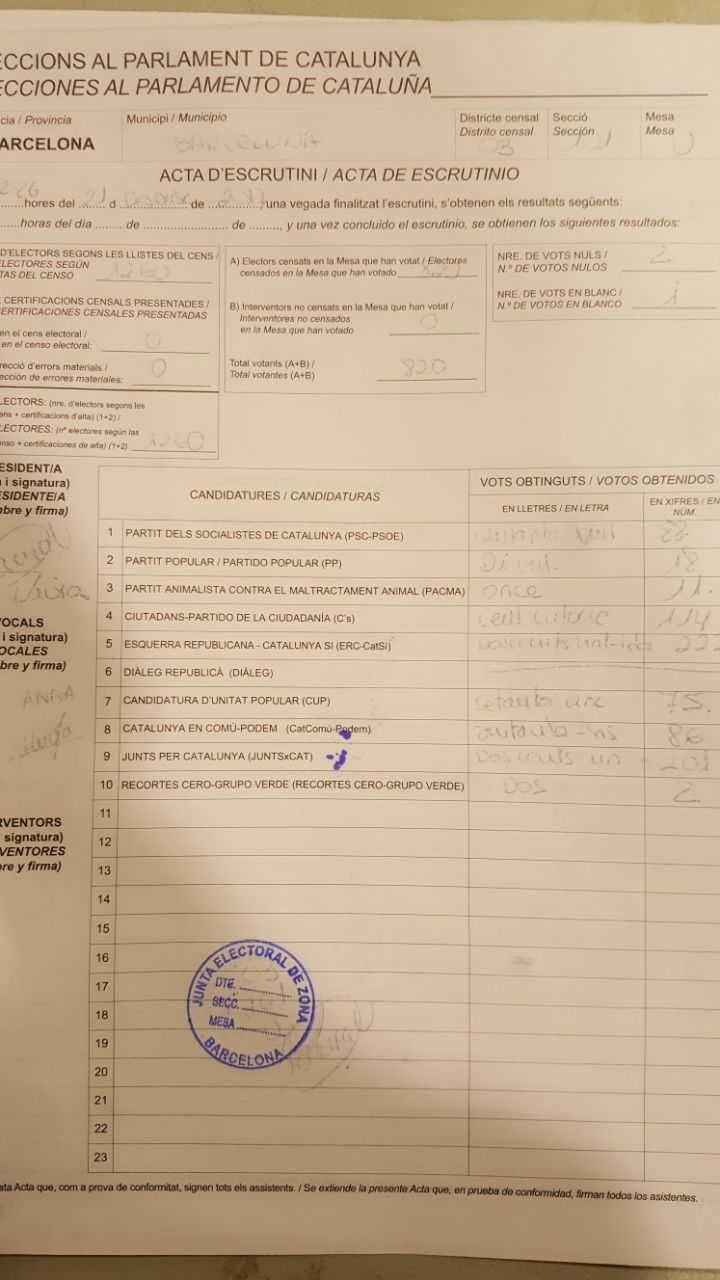 ECCIONS AL PARLAMENT DE CATALUNYA
ECCIONES AL PARLAMENTO DE CATALUÑA
cia / Provincia
ARCELONA
Municipi / Municipio
BARCELONA
Districte censal
Distrito censal
03
Secció
Sección
Mesa
Mesa
U
ACTA D'ESCRUTINI / ACTA DE ESCRUTINIO
2:26
hores del 21 d de 2017, una vegada finalitzat l'escrutini, s'obtenen els resultats següents:
horas del día ........ de ........................ de ........., y una vez concluido el escrutinio, se obtienen los siguientes resultados:
D'ELECTORS SEGONS LES LLISTES DEL CENS /
ELECTORES SEGÚN
TAS DEL CENSO
1260
CERTIFICACIONS CENSALS PRESENTADES /
CERTIFICACIONES CENSALES PRESENTADAS
en el cens electoral /
en el censo electoral:
0
recció d'errors materials /
ección de errores materiales:
0
LECTORS: (nre. d'electors segons les
ens + certificacions d'alta) (1+2) /
LECTORES: (nº electores según las
enso + certificaciones de alta) (1+2)
1260
A) Electors censats en la Mesa que han votat / Electores
censados en la Mesa que han votado
B) Interventors no censats en la Mesa que han votat /
Interventores no censados
en la Mesa que han votado
0
Total votants (A+B) /
Total votantes (A+B)
820
NRE. DE VOTS NULS /
N.º DE VOTOS NULOS
2
NRE. DE VOTS EN BLANC /
N.º DE VOTOS EN BLANCO
1
ESIDENT/A
i signatura)
ESIDENTE/A
mbre y firma)
VOCALS
i signatura)
OCALES
bre y firma)
ANNA
RVENTORS
signatura)
VENTORES
re y firma)
CANDIDATURES / CANDIDATURAS
VOTS OBTINGUTS / VOTOS OBTENIDOS
EN LLETRES / EN LETRA
EN XIFRES / EN
NÚM.
1 PARTIT DELS SOCIALISTES DE CATALUNYA (PSC-PSOE) 88
2 PARTIT POPULAR / PARTIDO POPULAR (PP) Divuit. 18
3 PARTIT ANIMALISTA CONTRA EL MALTRACTAMENT ANIMAL (PACMA) once 11.
4 CIUTADANS-PARTIDO DE LA CIUDADANÍA (C's) cent catorze 114
5 ESQUERRA REPUBLICANA - CATALUNYA SI (ERC-CatSí) 222
6 DIÀLEG REPUBLICÀ (DIÀLEG)
7 CANDIDATURA D'UNITAT POPULAR (CUP) setanta cinc 75.
8 CATALUNYA EN COMÚ-PODEM (CatComú-Podem) vuitanta-sis 86
9 JUNTS PER CATALUNYA (JUNTSxCAT) Doscents un 201
10 RECORTES CERO-GRUPO VERDE (RECORTES CERO-GRUPO VERDE) DOS 2
11
12
13
14
15
16
17
18
19
20
21
22
23
JUNTA ELECTORAL DE ZONA
DTE.
SECC.
MESA
BARCELONA
sta Acta que, com a prova de conformitat, signen tots els assistents. / Se extiende la presente Acta que, en prueba de conformidad, firman todos los asistentes.